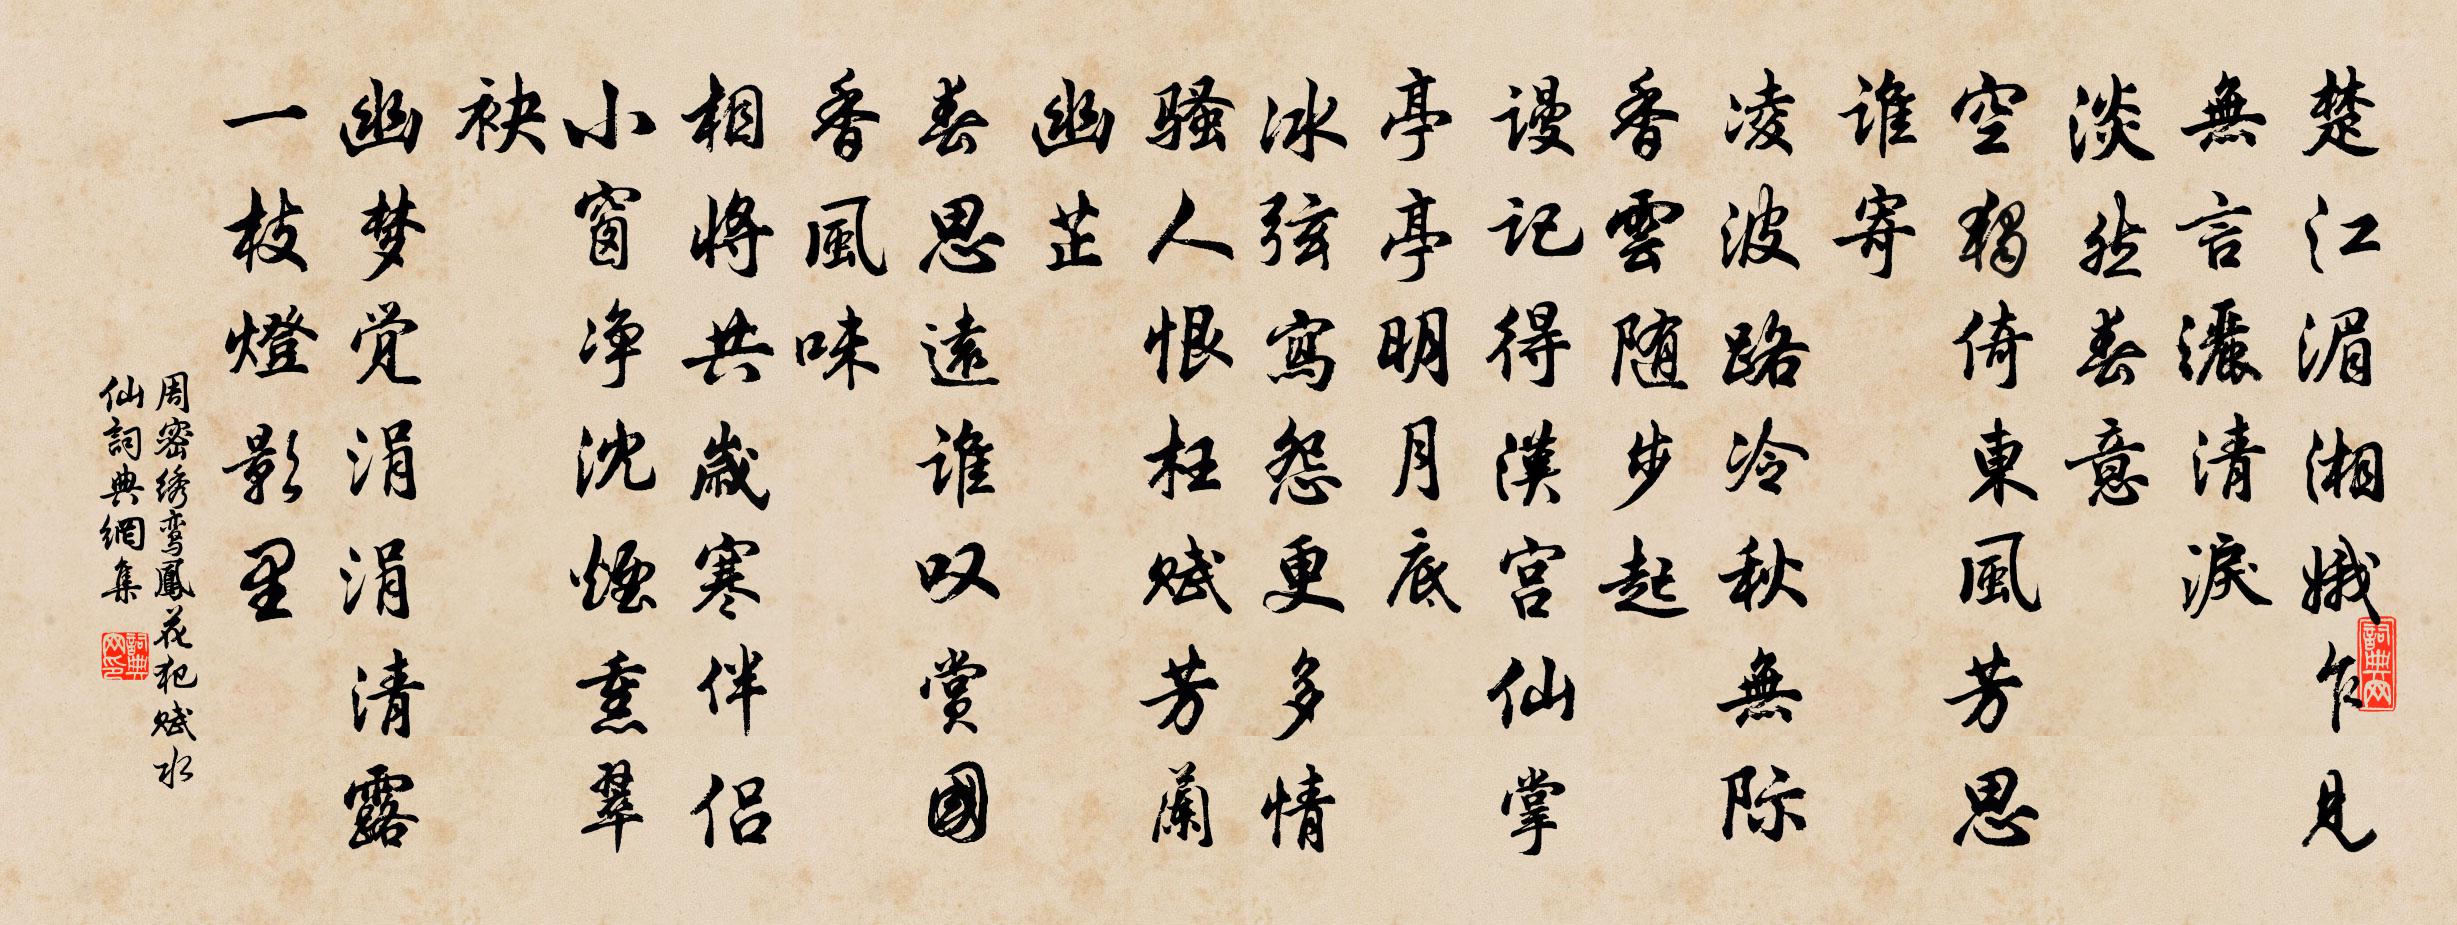 楚江湄湘娥乍見
無言灑清淚
淡然春意
空獨倚東風芳思
誰寄
凌波路冷秋無际
香雲随步起
謾记得漢宫仙掌
亭亭明月底
冰弦寫怨更多情
骚人恨枉赋芳蘭
幽芷
春思遠谁叹赏國
香風味
相將共歲寒伴侣
小窗净沈煙熏翠
袂
幽梦觉涓涓清露
一枝燈影里
周密绣鸾鳳花犯赋水
仙詞典網集
詞典网
詞典网印